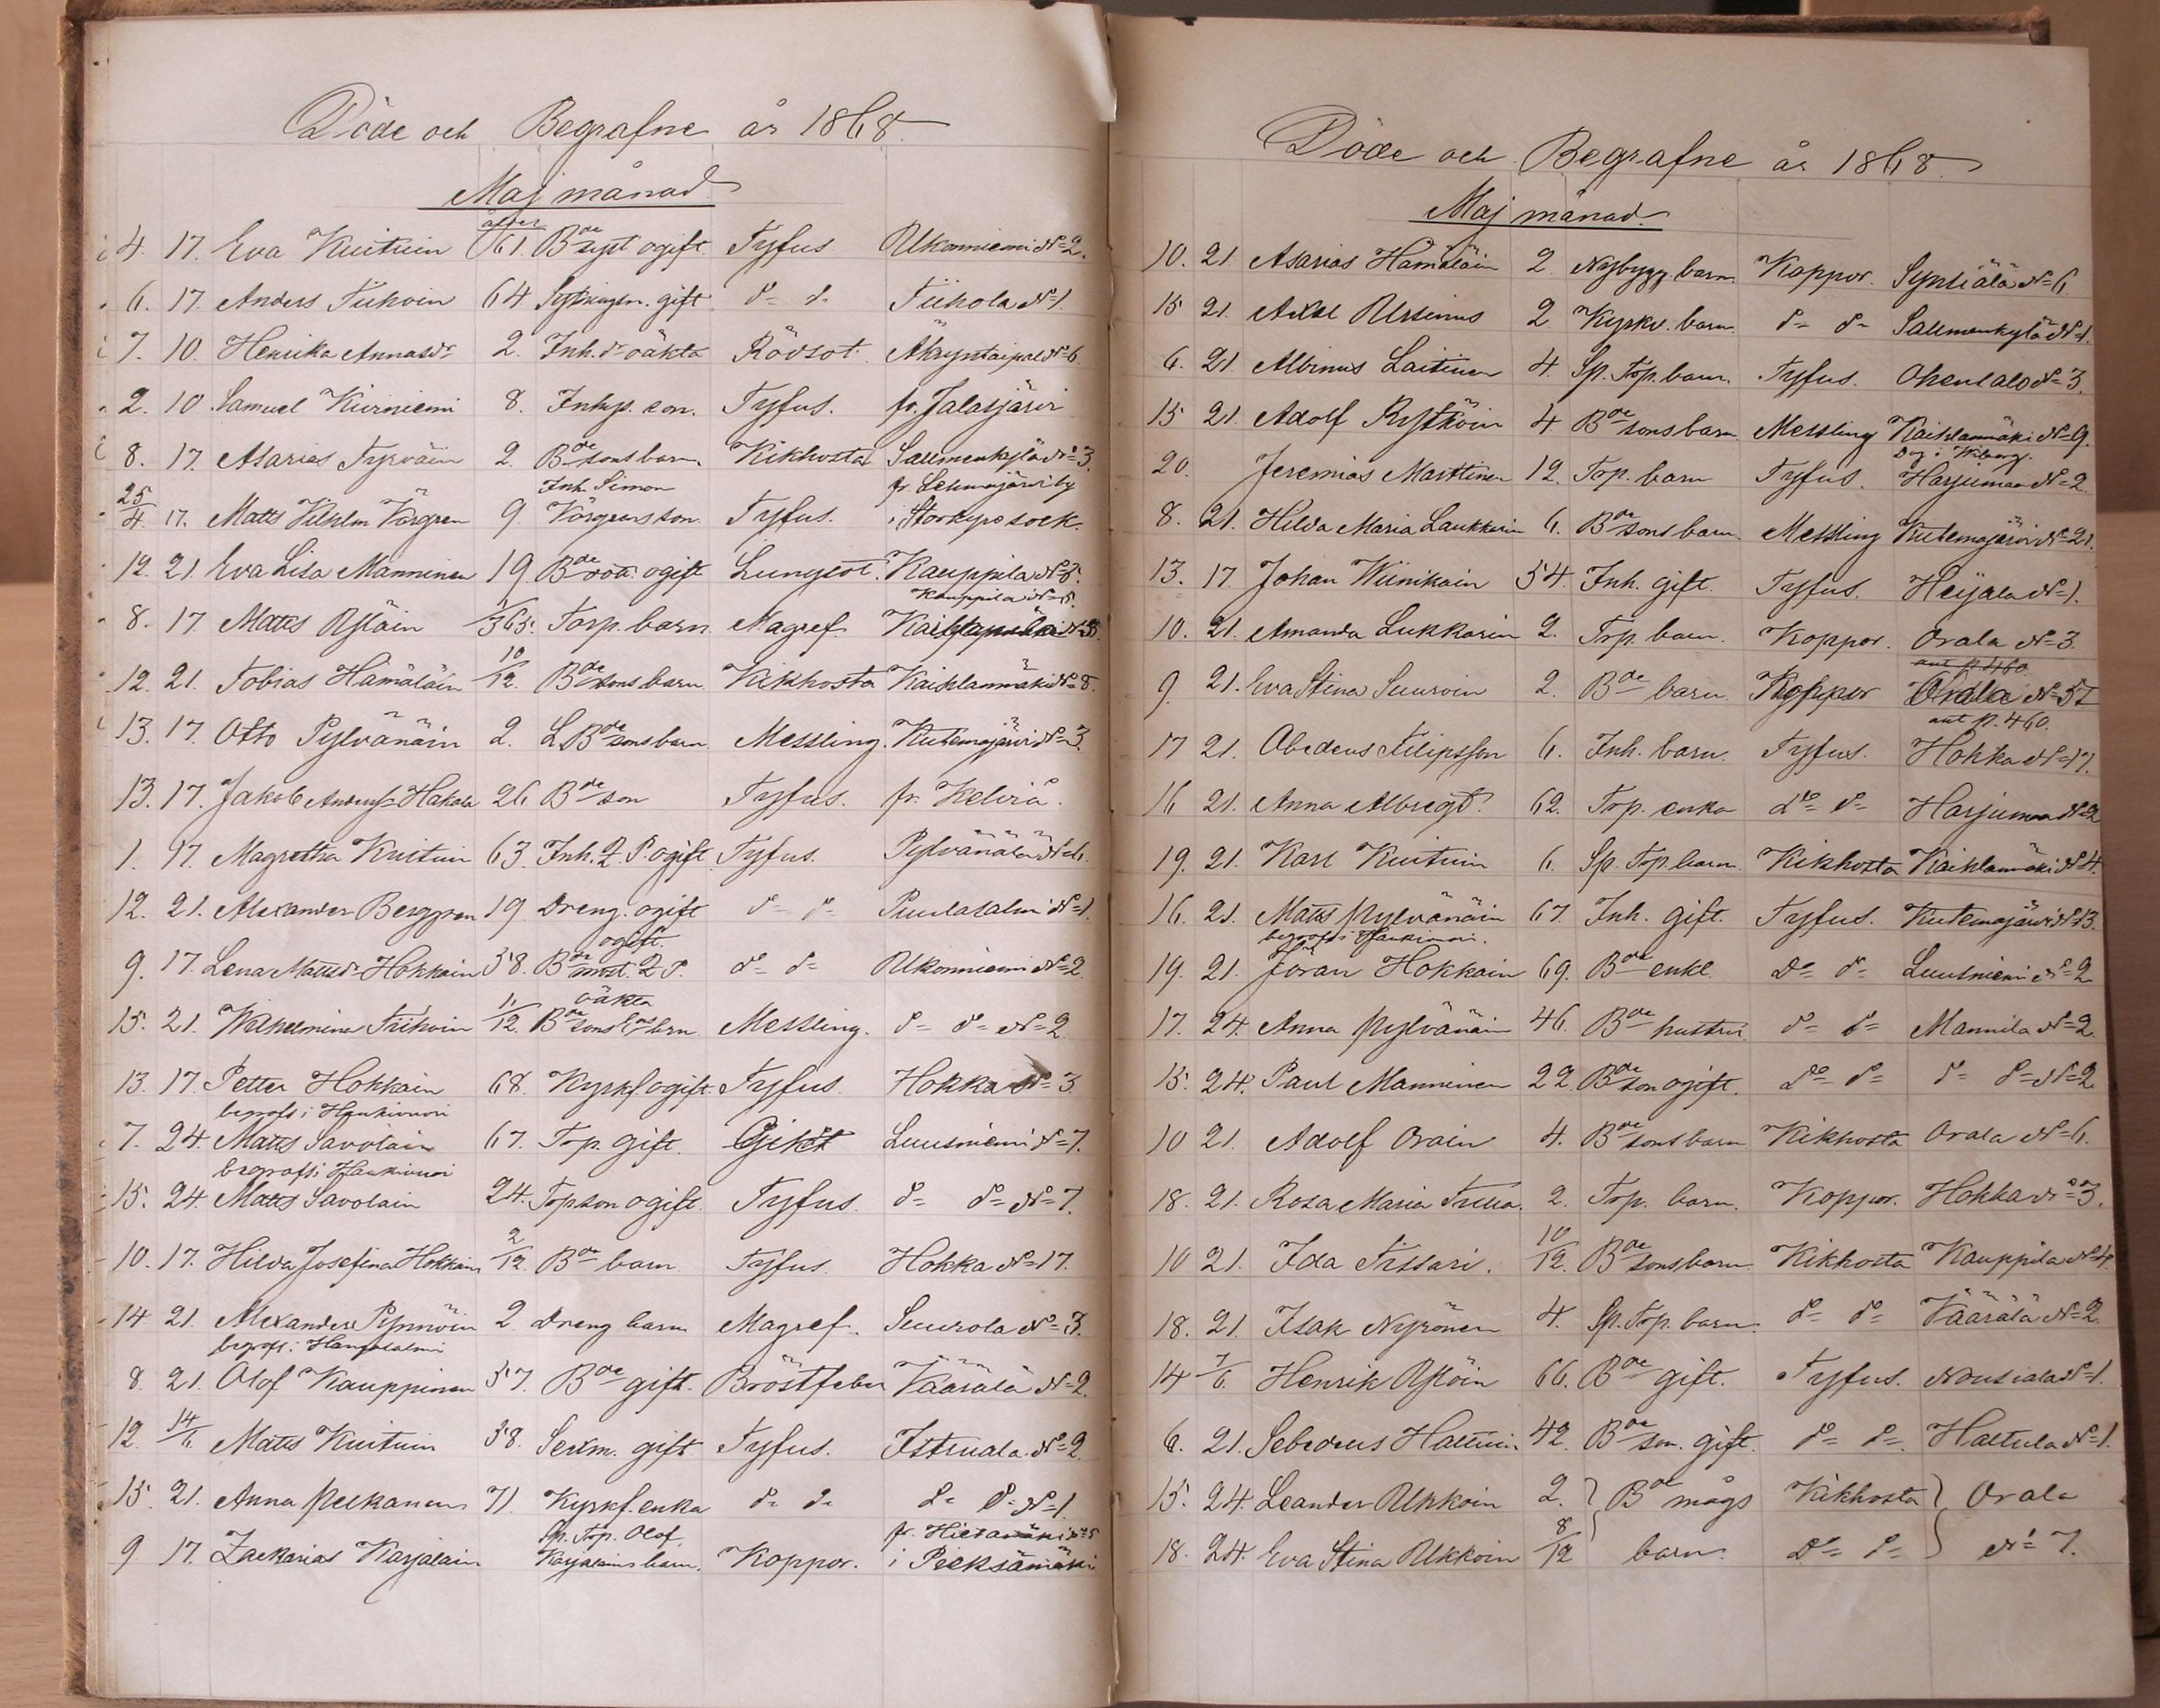 Döde och Begrafne år 1868.
Maj månad
ålder
4. 17. Eva Kuituin 61. Bde syst ogift. Tyfus Ukonniemi No 2.
6. 17. Anders Tiihoin 64 Sytningsm. gift do do Tiihola No 1.
7. 10. Henrika Annasdr 2. Inh. dr oäkta Rödsot Äkryntaipal No 6
2. 10 Samuel Kiviniemi 8. Inhys. son. Tyfus. fr. Jalasjärvi
8. 17. Asarias Tyrväin 2. Bde sons barn Kikhosta Salmenkylä No 3.
Inh. Simon fr. Lehmäjärvi by
25/4. 17. Matts Vilhelm Vörgren 9 Vörgrens son. Tyfus. i Storkyro sock.
12. 21. Eva Lisa Manninen 19 Bde ogift Lungsot. Kauppila No 8.
Kauppila No
8. 17. Matts Ylöin /365. Torp. barn Magref
12. 21. Tobias Hämäläin 10/12. Bde sons barn Kikhosta Kaihlanmäki No 8.
13. 17. Otto Pylvänäin 2. L. Bde sons barn Messling. Kutemajärvi No 3.
13. 17. Jakob Anderss. Hakala 26 Bde son Tyfus. fr. Kelviå.
1. 17. Magretha Kuituin 63. Inh. 2 P. ogift Tyfus. Pylvänälä No 6.
12. 21. Alexander Berggren 19 Dreng. ogift do do Puulasalmi No 1.
ogift.
9. 17. Lena Mattsdr Hokkain 58. Bde most. 2 P. do do Ukonniemi No 2.
oäkta
15. 21. Wilhelmina Tiihoin 11/12. Bde sons brn Messling. do do No 2.
13. 17. Petter Hokkain 68. Kyrkf. ogift. Tyfus. Hokka No 3
begrofs i Haukivuori
7. 24. Matts Savolain 67. Trp. gift. Gikt Luusniemi No 7.
begrofs i Haukivuori
15. 24. Matts Savolain 24. Trp son ogift. Tyfus. do do No 7.
10. 17. Hilda Josefina Hokkain 2/12. Bde barn Tyfus. Hokka No 17.
14 21. Alexander Pynnöin 2 Dreng barn Magref. Suurola No 3.
begrofs i Hangasalmi
8. 21. Olof Kauppinen 57. Bde gift. Bröstfeber Väärälä No 2.
12. 14/6. Matts Kuituin 58. Sexm. gift. Tyfus. Istruala No 2.
15. 21. Anna Pelkanen 71. Kyrkf. enka do do do do No 1.
Sp. Trp. Olof fr. Hietamäki No 5
9 17. Zackarias Karjalain Karjalains barn. Koppor. i Pieksämäki
Döde och Begrafne år 1868.
Maj månad.
10. 21. Asarias Hämäläin 2. Nybygg. barn Koppor. Synsiälä No 6.
15 21. Axel Ursinus 2 Kyrkv. barn. do do Salmenkylä No 1.
6. 21. Albinus Laitinen 4. Sp. Trp. barn. Tyfus. Ohenlalo No 3.
15 21. Adolf Rytköin 4 Bde sons barn Messling Kaihlanmäki No 9.
Dog i Wiborg.
20. Jeremias Marttinen 12. Trp. barn Tyfus. Harjumaa No 2.
8. 21. Hilda Maria Laukkarin 6. Bde sons barn Messling Kutemajärvi No 21.
13. 17. Johan Wiinikain 54. Inh. gift. Tyfus. Heijala No 1.
10. 21. Amanda Lukkarin 2. Trp. barn. Koppor. Orala No 3.
ant p. 460
9. 21. Eva Stina Suuroin 2. Bde barn Koppor Orala No 57
ant p. 460.
17 21. Abedeus Filipsson 6. Inh. barn. Tyfus. Hokka No 17.
16 21. Anna Albregt. 62. Trp. enka do do Harjumaa No 2
19. 21. Karl Kuituin 6. Sp. Trp. barn Kikhosta Kaihlanmäki No 4.
16. 21. Matts Pylvänäin 67. Inh. gift. Tyfus. Kutemajärvi No 13.
begrofs i Haukivuori.
19. 21. Jöran Hokkain 69. Bde enkl. do do Luusniemi No 2
17. 24. Anna Pylvänäin 46. Bde hustru do do Mannila No 2.
15. 24. Paul Manninen 22. Bde son ogift. do do do do No 2.
10 21. Adolf Orain 4. Bde sons barn Kikhosta Orala No 6.
18. 21. Rosa Maria 2. Trp. barn. Koppor. Hokka No 3.
10 21. Ida Tissari. 10/12. Bde sons barn Kikhosta Kauppila No 4.
18. 21. Isak Nyrönen 4. Sp. Trp. barn. do do Väärälä No 2.
14 7/6. Henrik Ylöin 66. Bde gift. Tyfus. Nousiala No 1.
6. 21. Sebedeus Halttuin 42. Bde son. gift. do do Halttula No 1.
15. 24. Leander Ukkoin 2. } Bde mågs Kikhosta } Orala
18. 24. Eva Stina Ukkoin 8/12 } barn. do do } No 7.